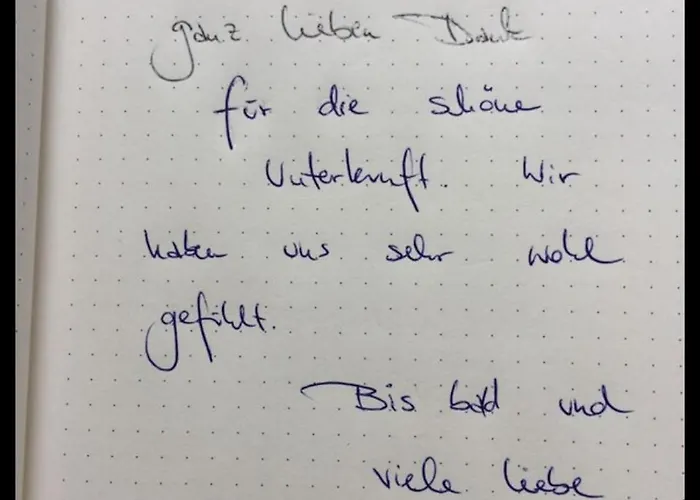 ganz lieben Dank
für die schöne
Unterkunft. Wir
haben uns sehr wohl
gefühlt.
Bis bald und
viele liebe